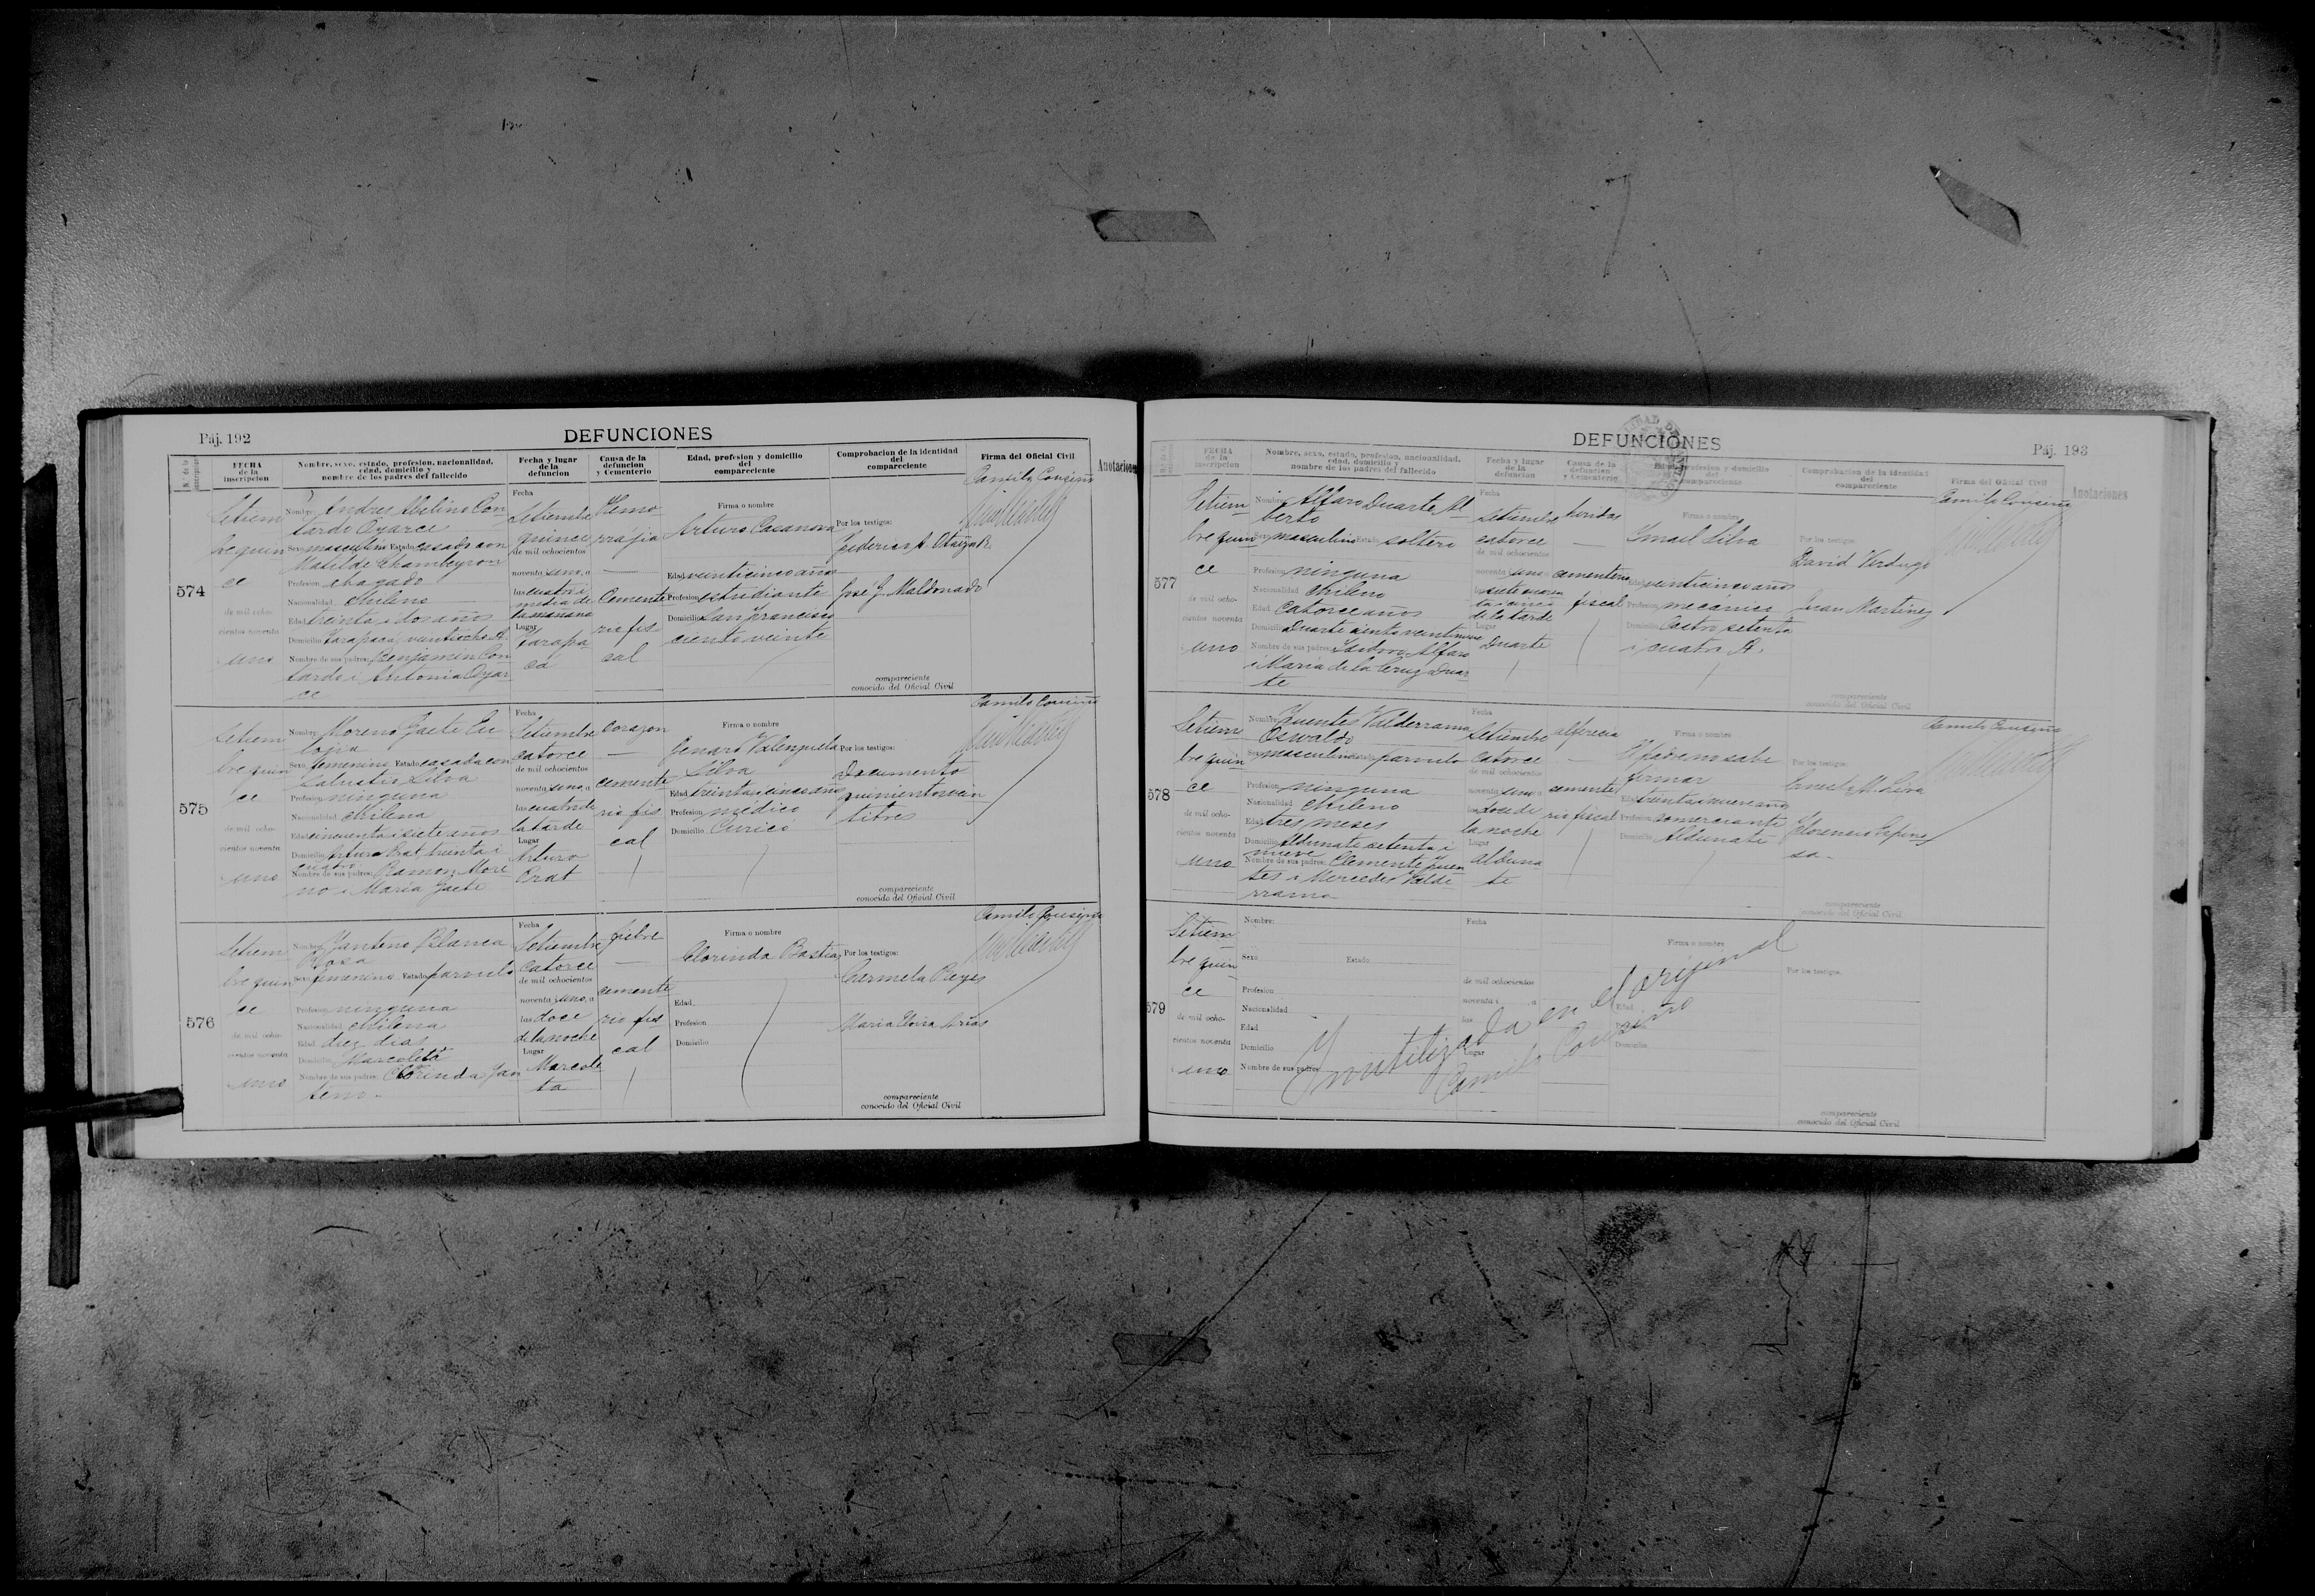 Páj. 192
DEFUNCIONES
N.º de la inscripcion
FECHA de la inscripcion
Nombre, sexo, estado, profesion, nacionalidad, edad, domicilio y nombre de los padres del fallecido
Fecha y lugar de la defuncion
Causa de la defuncion y Cementerio
Edad, profesion y domicilio del compareciente
Comprobacion de la identidad del compareciente
Firma del Oficial Civil
Anotaciones
574
Setiem
bre quin
ce
de mil ocho-
cientos noventa
uno
Nombre: Andres Avelino Con
tardo Oyarce
Sexo masculino Estado casado con
Matilde Chambeyron
Profesion abogado
Nacionalidad chileno
Edad treinta i dos años
Domicilio Tarapacá, veintiocho A
Nombre de sus padres: Benjamin Con
tardo i Antonia Oyar
ce
Fecha
Setiembre
quince
de mil ochocientos
noventa i uno, a
las cuatro i
media de
la mañana
Lugar
Tarapa
cá
Hemo
rrájia
Cemente
rio fis
cal
Firma o nombre
Arturo Casanova
Edad veinticinco años
Profesion estudiante
Domicilio San Francisco
ciento veinte
Por los testigos:
Federico A. Otaiza R.
José J. Maldonado
compareciente
conocido del Oficial Civil
Camilo Cousiño
575
Setiem
bre quin
ce
de mil ocho-
cientos noventa
uno
Nombre: Moreno Gaete Eu
lojia
Sexo femenino Estado casada con
Calistro Silva
Profesion ninguna
Nacionalidad chilena
Edad cincuenta i siete años
Domicilio Arturo Prat, treinta i
cuatro
Nombre de sus padres: Ramon More
no i Maria Gaete
Fecha
Setiembre
catorce
de mil ochocientos
noventa i uno, a
las cuatro de
la tarde
Lugar
Arturo
Prat
corazon
cemente
rio fis
cal
Firma o nombre
Jenaro Valenzuela
Silva
Edad treinta i cinco años
Profesion médico
Domicilio Curicó
Por los testigos:
Documento
quinientos vein
titres
compareciente
conocido del Oficial Civil
Camilo Cousiño
576
Setiem
bre quin
ce
de mil ocho-
cientos noventa
uno
Nombre: Janteno Blanca
Rosa
Sexo femenino Estado parvulo
Profesion ninguna
Nacionalidad chilena
Edad diez dias
Domicilio Marcoleta
Nombre de sus padres: Clorinda Jan
teno.
Fecha
Setiembre
catorce
de mil ochocientos
noventa i uno, a
las doce
de la noche
Lugar
Marcole
ta
fiebre
cemente
rio fis
cal
Firma o nombre
Clorinda Bastias
Edad
Profesion
Domicilio
Por los testigos:
Carmela Reyes
Maria Luisa Arias
compareciente
conocido del Oficial Civil
Camilo Cousiño
DEFUNCIONES
Páj. 193
FECHA de la inscripcion
Nombre, sexo, estado, profesion, nacionalidad, edad, domicilio y nombre de los padres del fallecido
Fecha y lugar de la defuncion
Causa de la defuncion y Cementerio
Edad, profesion y domicilio del compareciente
Comprobacion de la identidad del compareciente
Firma del Oficial Civil
Anotaciones
577
Setiem
bre quin
ce
de mil ocho-
cientos noventa
i uno
Nombre: Alfaro Duarte Al
berto
Sexo masculino Estado soltero
Profesion ninguna
Nacionalidad chileno
Edad catorce años
Domicilio Duarte ciento veintinueve
Nombre de sus padres: Isidoro Alfaro
i Maria de la Cruz Duar
te
Fecha
Setiembre
catorce
de mil ochocientos
noventa i uno a
las siete
de la tarde
Lugar
Duarte
heridas
cementerio
fiscal
Firma o nombre
Ismael Silva
Edad veinticinco años
Profesion mecánico
Domicilio Castro setenta
i cuatro A.
Por los testigos:
David Verdugo
Juan Martinez
compareciente
conocido del Oficial Civil
Camilo Cousiño
578
Setiem
bre quin
ce
de mil ocho-
cientos noventa
uno
Nombre: Fuentes Valderrama
Oswaldo
Sexo masculino Estado parvulo
Profesion ninguna
Nacionalidad chileno
Edad tres meses
Domicilio Aldunate setenta i
nueve
Nombre de sus padres: Clemente Fuen
tes i Mercedes Valde
rrama
Fecha
Setiembre
catorce
de mil ochocientos
noventa i uno a
las doce de
la noche
Lugar
Alduna
te
alferecia
cemente
rio fiscal
Firma o nombre
El padre no sabe
firmar
Edad treinta i nueve años
Profesion comerciante
Domicilio Aldunate
Por los testigos:
Ernesto M. Silva
Florencio Espino
sa
compareciente
conocido del Oficial Civil
Camilo Cousiño
579
Setiem
bre quin
ce
de mil ocho-
cientos noventa
i uno
Nombre:
Sexo Estado
Profesion
Nacionalidad
Edad
Domicilio
Nombre de sus padres:
Fecha
de mil ochocientos
noventa i , a
las
Lugar
Firma o nombre
Edad
Domicilio
Por los testigos:
compareciente
conocido del Oficial Civil
Inutilizada en el orijinal
Camilo Cousiño